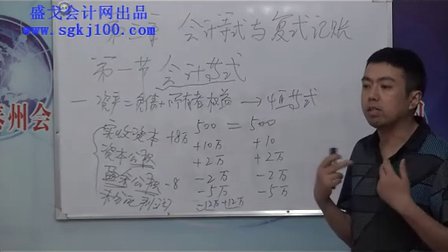 盛戈会计网出品
www.sgkj100.com
会计等式与复式记账
第一节 会计等式
一 资产=负债+所有者权益 → 恒等式
实收资本 +8万 500 = 500
资本公积 +10万 +10
+2万 +2万
盈余公积 -8 -2万 -2万
未分配利润 -5万 -5万
-12万 +12万
泰州会